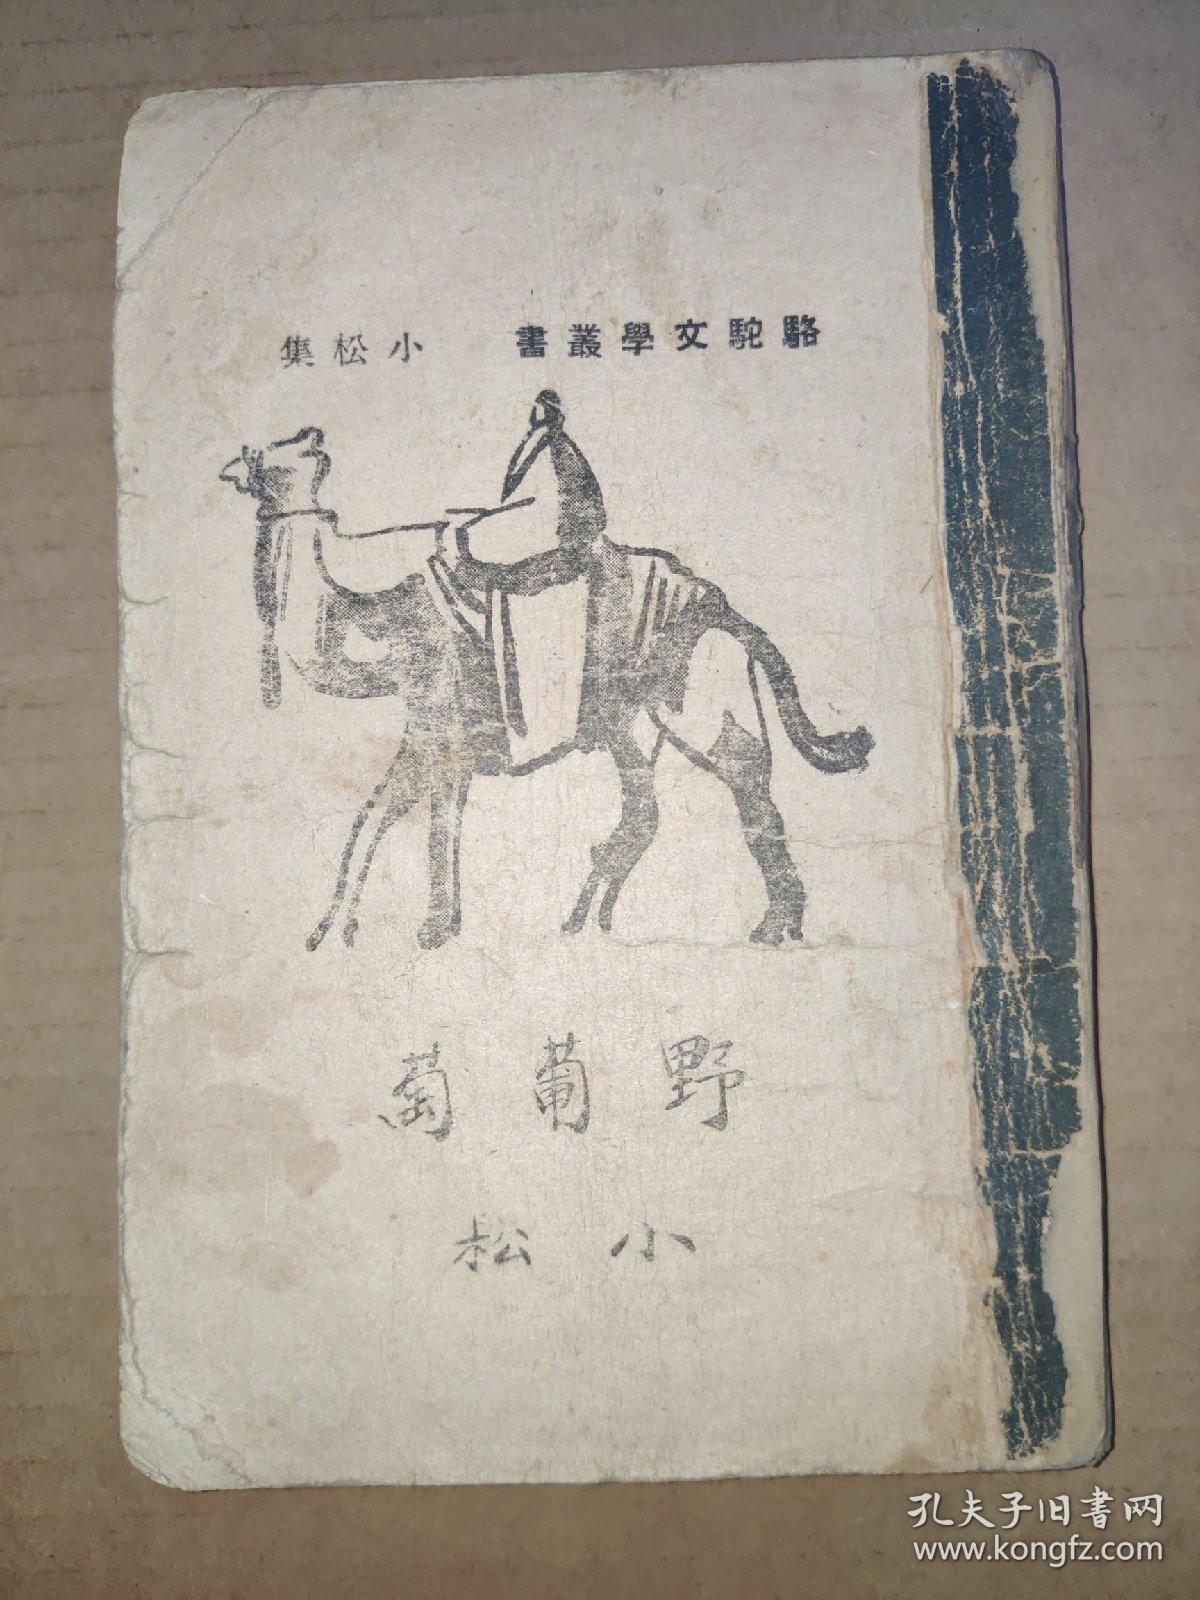 駱駝文學叢書 小松集
野葡萄
小松
孔夫子旧书网
www.kongfz.com